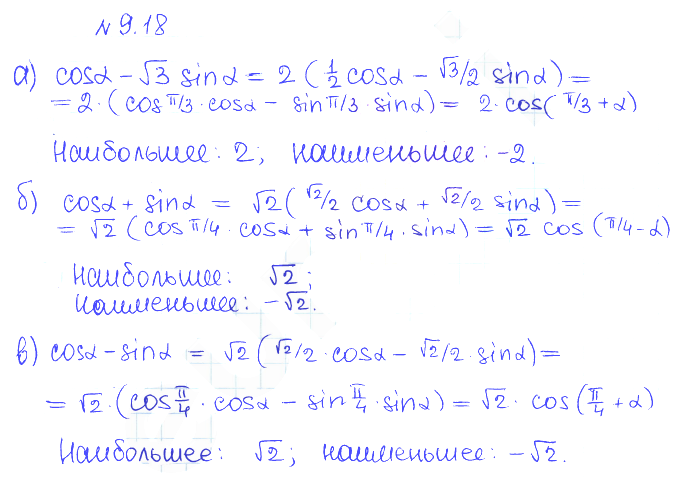 № 9.18
а) cosα - √3 sinα = 2 (1/2 cosα - √3/2 sinα) =
= 2 · (cos π/3 · cosα - sin π/3 · sinα) = 2 · cos(π/3 + α)
Наибольшее: 2; наименьшее: -2.
б) cosα + sinα = √2 (√2/2 cosα + √2/2 sinα) =
= √2 (cos π/4 · cosα + sin π/4 · sinα) = √2 cos (π/4 - α)
Наибольшее: √2;
наименьшее: -√2.
в) cosα - sinα = √2 (√2/2 · cosα - √2/2 · sinα) =
= √2 · (cos π/4 · cosα - sin π/4 · sinα) = √2 · cos (π/4 + α)
Наибольшее: √2; наименьшее: -√2.